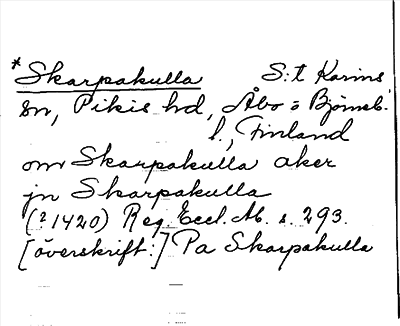 *Skarpakulla S:t Karins
sn, Pikis hd, Åbo o Björneb.
l., Finland
om Skarpakulla aker
jn Skarpakulla
(? 1420) Reg. Eccl. Ab. s. 293.
[överskrift:] Pa Skarpakulla